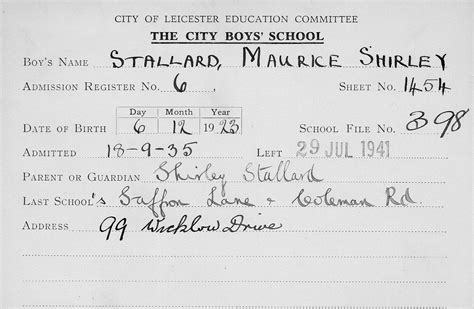 CITY OF LEICESTER EDUCATION COMMITTEE
THE CITY BOYS' SCHOOL
BOY'S NAME STALLARD, MAURICE SHIRLEY
ADMISSION REGISTER NO. 6 SHEET NO. 1454
Day Month Year
DATE OF BIRTH 6 12 1923 SCHOOL FILE NO. 398
ADMITTED 18-9-35 LEFT 29 JUL 1941
PARENT OR GUARDIAN Shirley Stallard
LAST SCHOOL'S Saffron Lane + Coleman Rd.
ADDRESS 99 Wicklow Drive